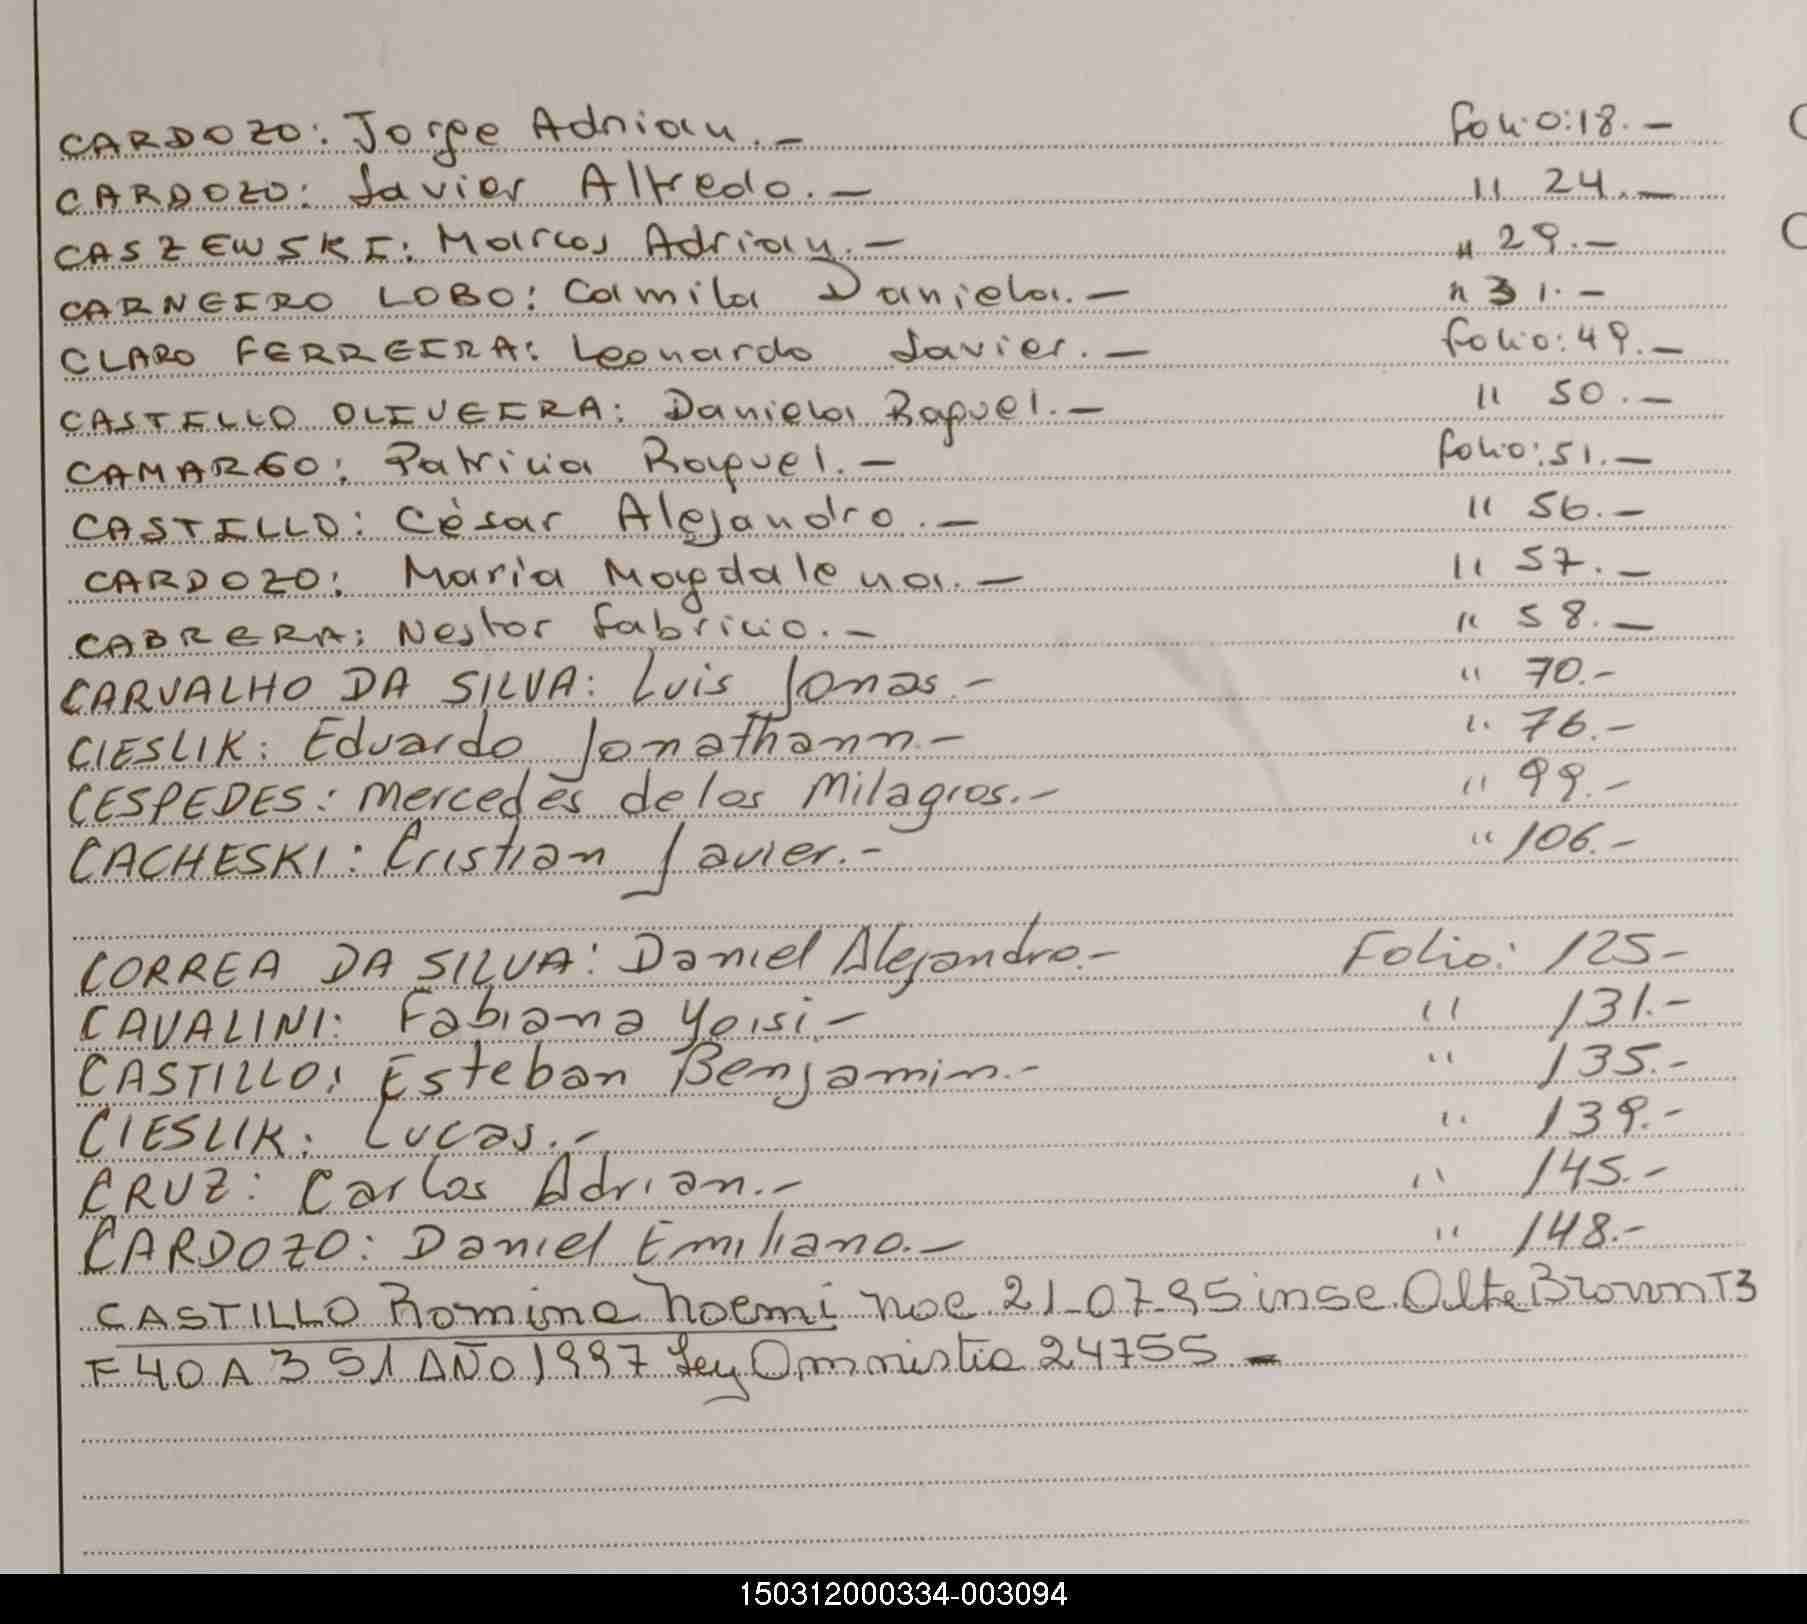 CARDOZO: Jorge Adrian.- Folio: 18.-
CARDOZO: Javier Alfredo.- " 24.-
CASZEWSKI: Marcos Adrian.- " 29.-
CARNEIRO LOBO: Camila Daniela.- " 31.-
CLARO FERREIRA: Leonardo Javier.- Folio: 49.-
CASTELLO OLIVEIRA: Daniela Raquel.- " 50.-
CAMARGO: Patricia Raquel.- Folio: 51.-
CASTILLO: César Alejandro.- " 56.-
CARDOZO: Maria Magdalena.- " 57.-
CABRERA: Nestor Fabricio.- " 58.-
CARVALHO DA SILVA: Luis Jonas.- " 70.-
CIESLIK: Eduardo Jonathann.- " 76.-
CESPEDES: Mercedes de los Milagros.- " 99.-
CACHESKI: Cristian Javier.- " 106.-
CORREA DA SILVA: Daniel Alejandro.- Folio: 125.-
CAVALINI: Fabiana Yeisi.- " 131.-
CASTILLO: Esteban Benjamin.- " 135.-
CIESLIK: Lucas.- " 139.-
CRUZ: Carlos Adrian.- " 145.-
CARDOZO: Daniel Emiliano.- " 148.-
CASTILLO Romina Noemi nac 21-07-95 insc. Alte Brown T3
F40 A 351 AÑO 1997 Ley Amnistia 24755 -
150312000334-003094